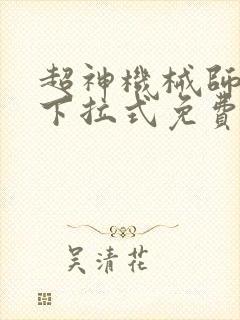 超神機械師
下拉式免費
吴清花